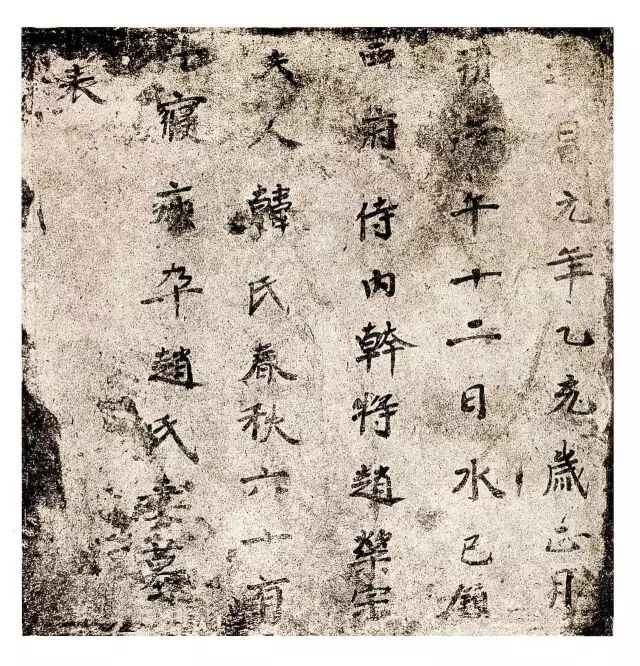 昌元年乙亥歲正月
朔午十二日水巳鎮
西府侍内幹將趙榮宗
夫人韓氏春秋六十有
七寢疾卒趙氏妻墓
表